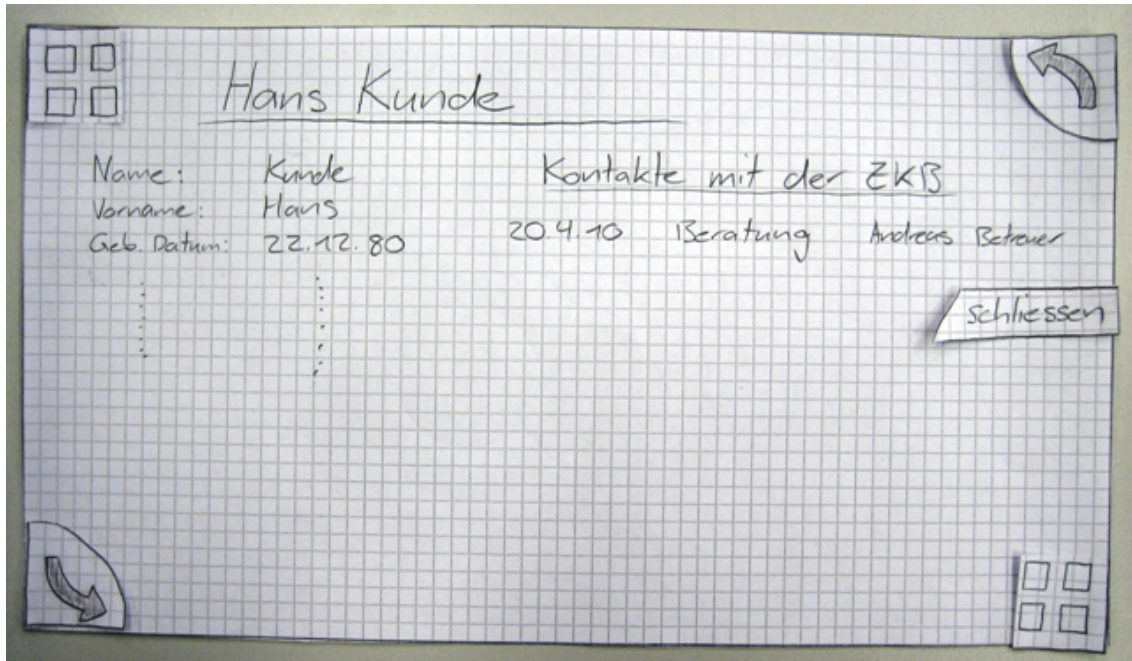 Hans Kunde
Name: Kunde
Vorname: Hans
Geb. Datum: 22.12.80
Kontakte mit der ZKB
20.4.10 Beratung Andreas Betreuer
schliessen